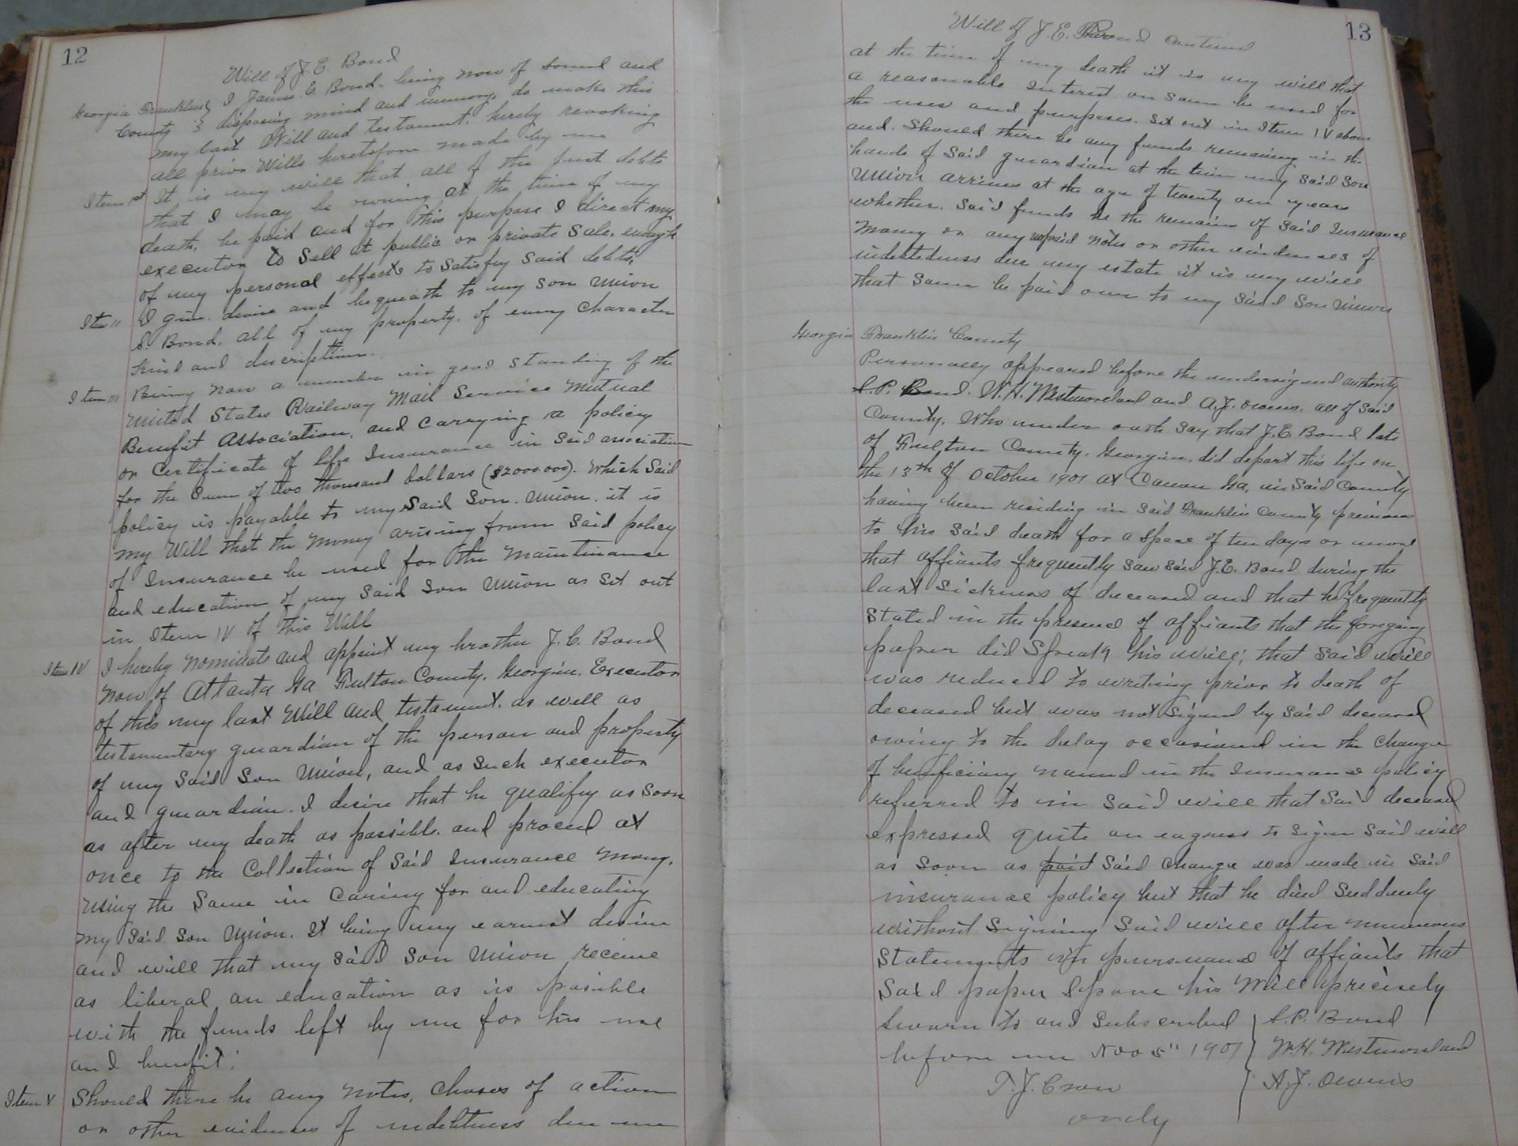 12
Will of J. E. Bond
Georgia Franklin } I James E Bond, being now of sound and
County } disposing mind and memory, do make this
my last Will and testament, hereby revoking
all prior Wills heretofore made by me
Item 1st It is my will that all of the just debts
that I may be owing at the time of my
death, be paid and for this purpose I direct my
executor to sell at public or private sale, enough
of my personal effects to satisfy said debts,
Item 11 I give, devise and bequeath to my son Union
S. Bond, all of my property, of every character
kind and description.
Item 111 Being now a member in good standing of the
United States Railway Mail Service Mutual
Benefit Association, and carrying a policy
or certificate of life Insurance in said association
for the sum of two thousand dollars ($2000.00). which said
policy is payable to my said son, Union, it is
my Will that the money arising from said policy
of Insurance be used for the maintinance
and education of my said son Union as set out
in Item IV of this Will
Item IV I hereby nominate and appoint my brother J. C. Bond
now of Atlanta Ga Fulton County, Georgia, Executor
of this my last Will and testament, as well as
testamentary guardian of the person and property
of my said son Union, and as such executor
and guardian, I desire that he qualify as soon
as after my death as possible, and proceed at
once to the collection of said Insurance money,
using the same in caring for and educating
my said son Union. It being my earnest desire
and will that my said son Union receive
as liberal an education as is possible
with the funds left by me for his use
and benefit.
Item V Should there be any notes, choses of action
or other evidences of indebtness due me
13
Will of J. E. Bond Continued
at the time of my death it is my will that
a reasonable interest on same be used for
the uses and purposes. Set out in Item IV above
and. Should there be any funds remaining in the
hands of said guardian at the time my said son
Union arrives at the age of twenty one years
whether. Said funds be the remains of said Insurance
money or any unpaid notes or other evidences of
indebtedness due my estate it is my will
that same be paid over to my said son Union
Georgia Franklin County
Personally appeared before the undersigned authority
S. P. Bond. W. H. Westmoreland and A. J. Owens. all of said
County, Who under oath say that J. E. Bond late
of Fulton County, Georgia. did depart this life on
the 13th of October 1901 at Canon Ga, in said County
having been residing in said Franklin County previous
to his said death for a space of ten days or more
that affiants frequently saw said J. E. Bond during the
last sickness of deceased and that he frequently
stated in the presence of affiants that the foregoing
paper did speak his will; that said will
was reduced to writing prior to death of
deceased but was not signed by said deceased
owing to the delay occasioned in the change
of beneficiary named in the insurance policy
referred to in said will that said deceased
expressed quite an eagness to sign said will
as soon as paid said change was made in said
insurance policy but that he died suddenly
without signing said will after numerous
statements in pursuance of affiants that
said paper spoke his Will precisely
Sworn to and subscribed } S. P. Bond
before me Nov 5" 1901 } W. H. Westmoreland
T. J. Crow } A. J. Owens
ordy